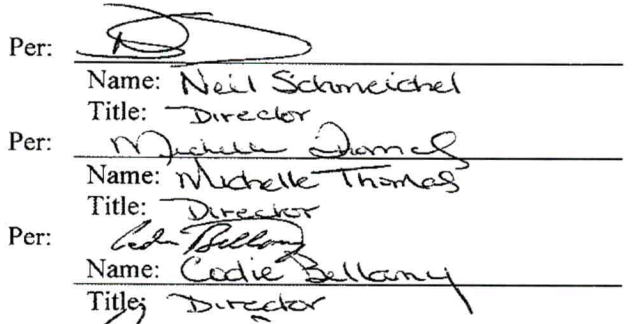 Per:
Name: Neil Schmeichel
Title: Director
Per: Michelle Thomas
Name: Michelle Thomas
Title: Director
Per: Codie Bellamy
Name: Codie Bellamy
Title: Director